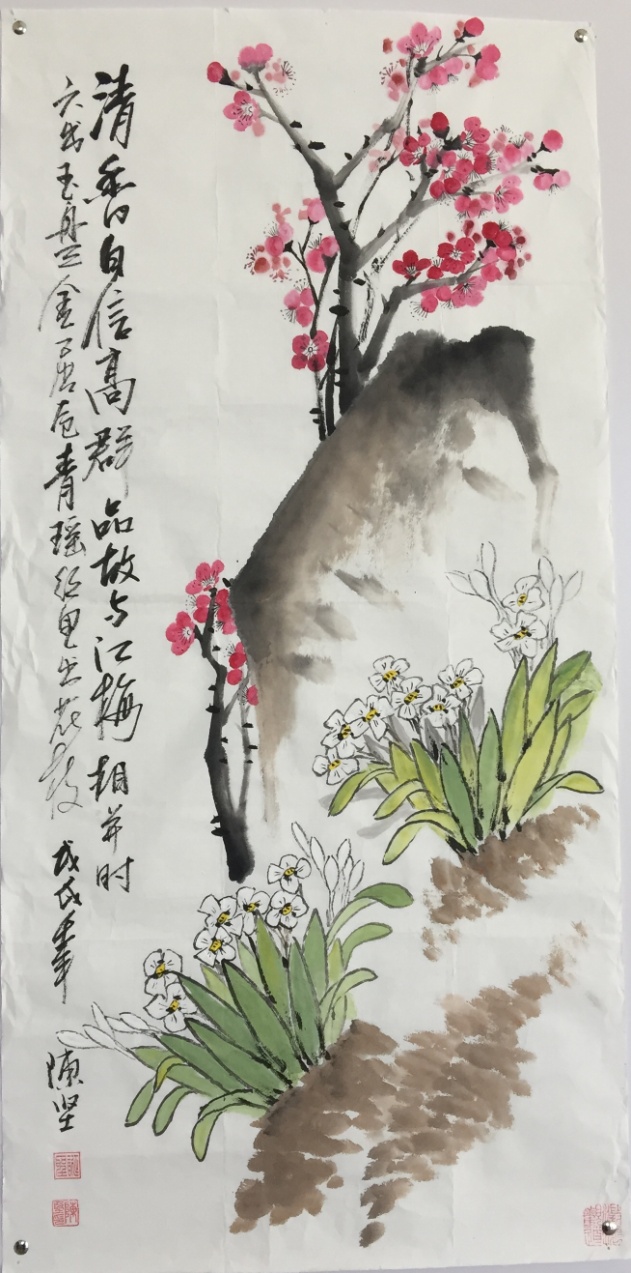 清香自信高群品故与江梅相并时
六出玉盘金屈卮青瑶丛里出花枝 戊戌年 陈坚